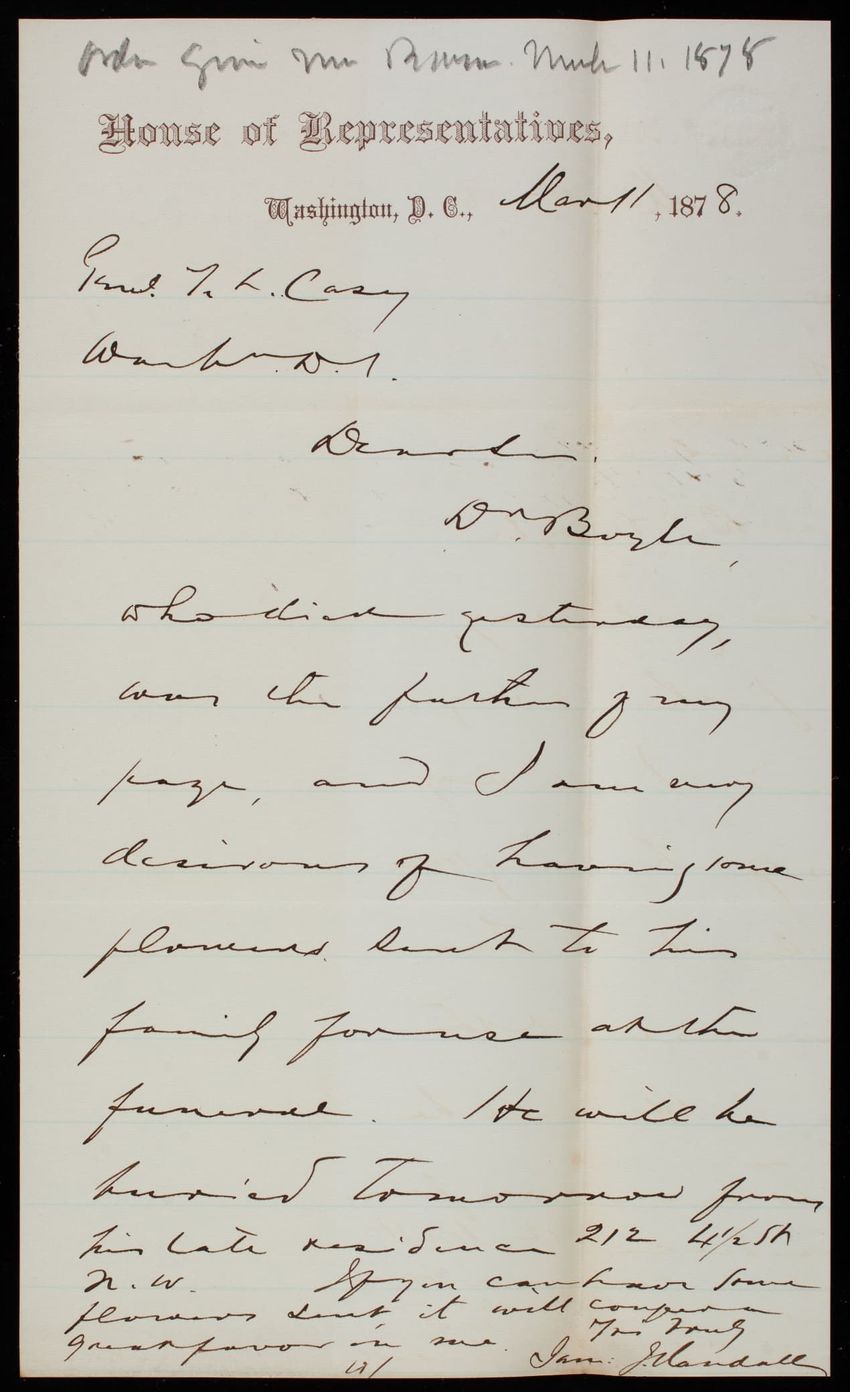 Order given Mr Brown. March 11. 1878
House of Representatives,
Washington, D. C., Mar 11, 1878.
Genl. T. L. Casey
Washn. D. C.
Dear Sir.
Dr. Boyle,
who died yesterday,
was the father of my
page, and I am very
desirous of having some
flowers sent to his
family for use at the
funeral. He will be
buried tomorrow from
his late residence 212 4½ St
N. W. If you can have some
flowers sent it will confer a
great favor on me. Yrs truly
Sam: J. Randall